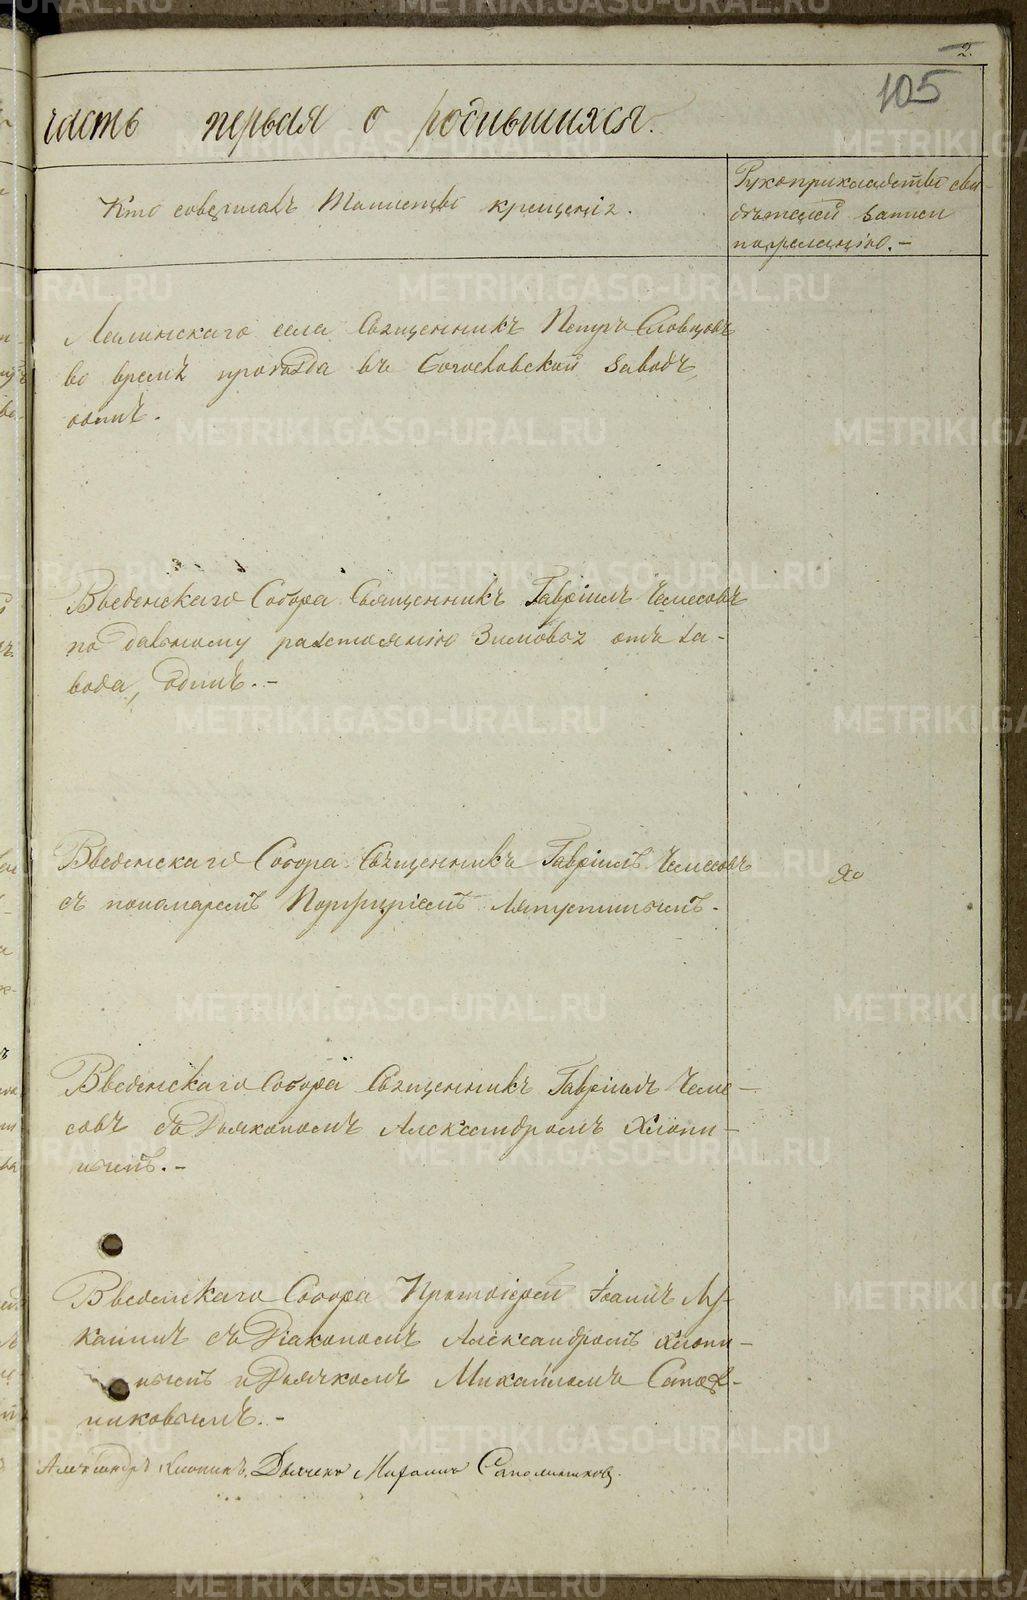 2.
105
часть первая о родившихся.
Кто совершалъ Таинство крещенія.
Рукоприкладство сви-
дѣтелей записи
по желанію. –
села Священникъ Петръ Словцовъ
во время проѣзда въ Богословской заводъ,
одинъ.
Введенскаго Собора Священникъ Гавріилъ Чемесовъ
по дальному разстоянію Зимовья отъ за-
вода, одинъ. –
Введенскаго Собора Священникъ Гавріилъ Чемесовъ
съ пономаремъ Порфиріемъ
Введенскаго Собора Священникъ Гавріилъ Чеме-
совъ съ Діакономъ Александромъ Хлопи-
нымъ. –
Введенскаго Собора Протоіерей Іоаннъ
съ Діакономъ Александромъ Хлопи-
нымъ и Дьячкомъ Михаиломъ Сапож-
никовымъ. –
Александръ Хлопинъ, Дьячекъ Михаилъ Сапожниковъ.
METRIKI.GASO-URAL.RU